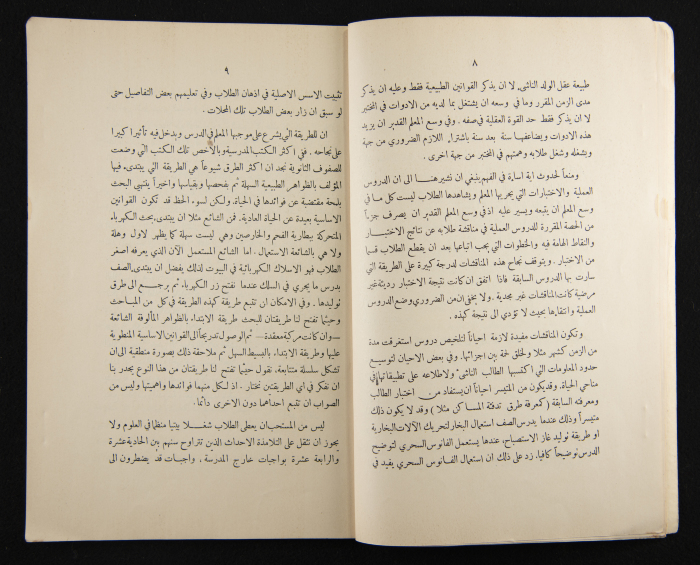 ٨
طبيعة عقل الولد الناشىء. لا ان يذكر القوانين الطبيعية فقط وعليه ان يذكر
مدى الزمن المقرر وما في وسعه ان يشتغل بما لديه من الادوات في المختبر
لا ان يذكر فقط حد القوة العقلية في صفه. وفي وسع المعلم القدير ان يزيد
هذه الادوات ويضاعفها سنة بعد سنة باشتراء اللازم الضروري من جهة
وبشغله وشغل طلابه وهمتهم في المختبر من جهة اخرى.
ومنعاً لحدوث اية اساءة في الفهم ينبغي ان نشير هنا الى ان الدروس
العملية والاختبارات التي يجريها المعلم ويشاهدها الطلاب ليست كل ما في
وسع المعلم ان يتبعه ويسير عليه اذ في وسع المعلم القدير ان يصرف جزءاً
من الحصة المقررة للدروس العملية في مناقشة طلابه عن نتائج الاختبار
والنقاط الهامة فيه والخطوات التي يجب اتباعها بعد ان يقطع الطلاب قسما
من الاختبار. ويتوقف نجاح هذه المناقشات لدرجة كبيرة على الطريقة التي
سارت بها الدروس السابقة فاذا اتفق ان كانت نتيجة الاختبار رديئة غير
مرضية كانت المناقشات غير مجدية. ولا يخفى ان من الضروري وضع الدروس
العملية وانتقارها بحيث لا تؤدي الى نتيجة كهذه.
وتكون المناقشات مفيدة لازمة احياناً لتلخيص دروس استغرقت مدة
من الزمن كشهر مثلا ولخلق لحمة بين اجزائها. وفي بعض الاحيان لتوسيع
حدود المعلومات التي اكتسبها الطالب الناشىء ولاطلاعه على تطبيقاتها في
مناحي الحياة. وقد يكون من المتيسر احياناً ان يستفاد من اختبار الطالب
ومعرفته السابقة (كمعرفة طرق تدفئة المساكن مثلا) وقد لا يكون ذلك
متيسراً وذلك عندما يدرس الصف استعمال البخار لتحريك الآلات البخارية
او طريقة توليد غاز الاستصباح، عندها يستعمل الفانوس السحري لتوضيح
الدرس توضيحاً كافيا. زد على ذلك ان استعمال الفانوس السحري يفيد في
٩
تثبيت الاسس الاصلية في اذهان الطلاب وفي تعليمهم بعض التفاصيل حتى
لو سبق ان زار بعض الطلاب تلك المحلات.
ان للطريقة التي يشرع على موجبها المعلم في الدرس ويدخل فيه تأثيرا كبيرا
على نجاحه. ففي اكثر الكتب المدرسية وبالأخص تلك الكتب التي وضعت
للصفوف الثانوية نجد ان اكثر الطرق شيوعاً هي الطريقة التي يبتدىء فيها
المؤلف بالظواهر الطبيعية السهلة ثم يفحصها ويقياسها واخيراً ينتهي البحث
بلمحة مقتضبة عن فوائدها في الحياة. ولكن لسوء الحظ قد تكون القوانين
الاساسية بعيدة عن الحياة العادية. فمن الشائع مثلا ان يبتدىء بحث الكهرباء
المتحركة ببطارية الفحم والخارصين وهي ليست سهلة كما يظهر لاول وهلة
ولا هي بالشائعة الاستعمال. اما الشائع المستعمل الآن الذي يعرفه اصغر
الطلاب فهو الاسلاك الكهربائية في البيوت لذلك يفضل ان يبتدىء الصف
بدرس ما يجري في السلك عندما نفتح زر الكهرباء ثم يرجع الى طرق
توليدها. وفي الامكان ان تتبع طريقة كهذه الطريقة في كل من المباحث
وحيثما تفتح لنا طريقتان للبحث طريقة الابتداء بالظواهر المألوفة الشائعة
— وان كانت مركبة معقدة — ثم الوصول تدريجاً الى القوانين الاساسية المنطوية
عليها وطريقة الابتداء بالبسيط السهل ثم ملاحقة ذلك بصورة منطقية الى ان
تشكل سلسلة متتابعة. نقول حيثما تفتح لنا طريقتان من هذا النوع يجدر بنا
ان نفكر في اي الطريقتين نختار. اذ لكل منهما فوائدها واهميتها وليس من
الصواب ان تتبع احداهما دون الاخرى دائما.
ليس من المستحب ان يعطى الطلاب شغلا بيتيا منظما في العلوم ولا
يجوز ان نثقل على التلامذة الاحداث الذين تتراوح سنهم بين الحادية عشرة
والرابعة عشرة بواجبات خارج المدرسة. واجبات قد يضطرون الى